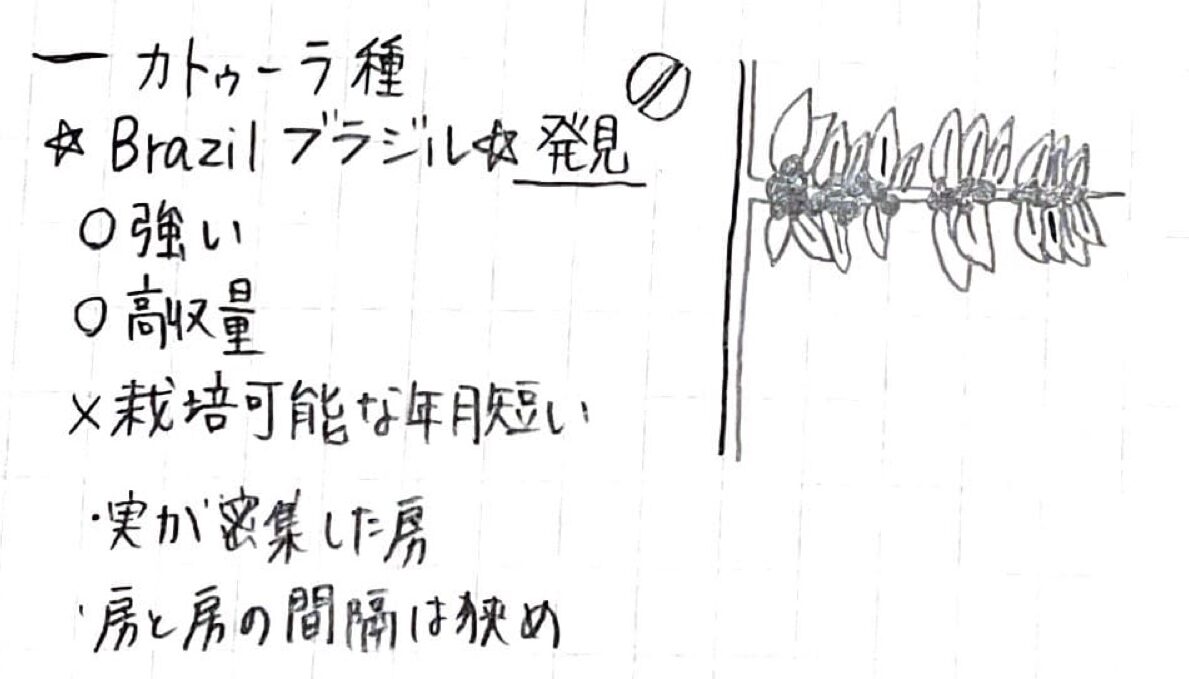 ー カトゥーラ種
☆ Brazil ブラジル☆ 発見
○強い
○高収量
×栽培可能な年月短い
・実が密集した房
・房と房の間隔は狭め